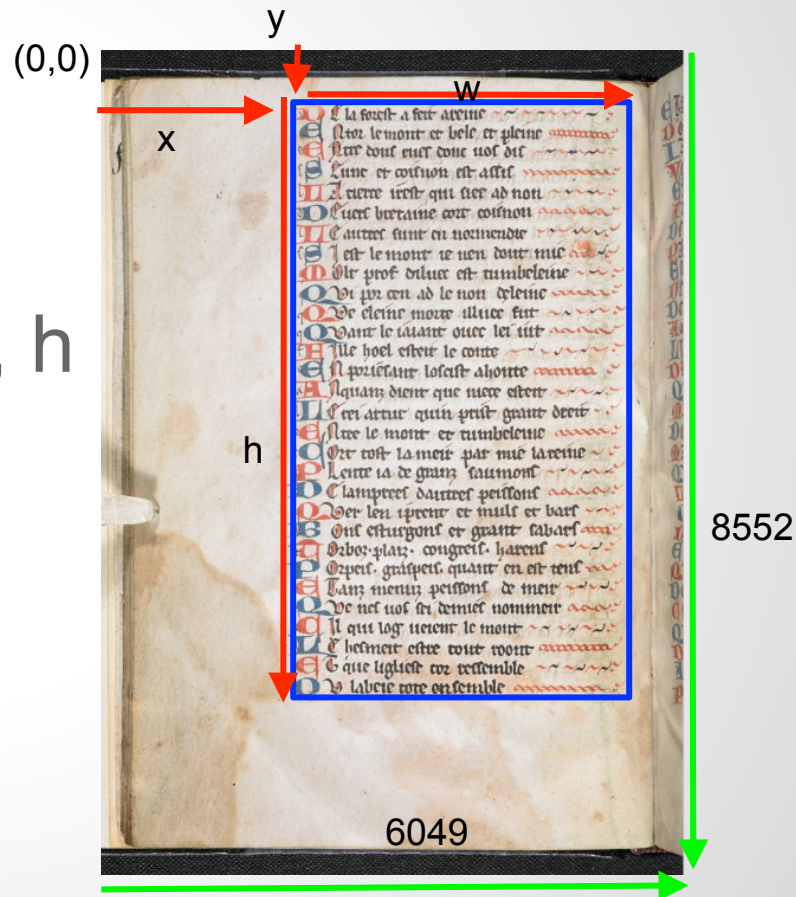 y
(0,0)
w
x
, h
h
8552
6049
E la forest a feit areine
E Ntor le mont et bele et pleine
E Ntre dous eues done uos dis
S Lune et coisnon est assis
L A tierce uest qui siet ad non
D Euers bretaine cort coisnon
L E autres sunt en normendie
S I est le mont ie nen dout mie
M Olt prof diluec est tumbeleine
Q Vi por cen ad le non deleine
Q Ve eleine morte illuec fut
Q Vant le iaiant ouec lei iut
hoel esteit le conte
E N
A Nquanz dient que niece esteit
L E rei artur quin prist grant dreit
E Ntre le mont et tumbeleine
C Ort tost la meir par mie lareine
P Leute ia de granz saumons
D E lamprees dautres peissons
Q Ver len i prent et muls et bars
B Ons esturgons et grant
T Orboz plaiz congreis harens
P Orpeis graspeis quant en est tens
E Tanz menuz peissons de meir
Q Ve nes uos sei demies nommeir
C Il qui log ueient le mont
L E hesmeit estre tout roont
E T que ligliese tor ressemble
O V labeie tote ensemble